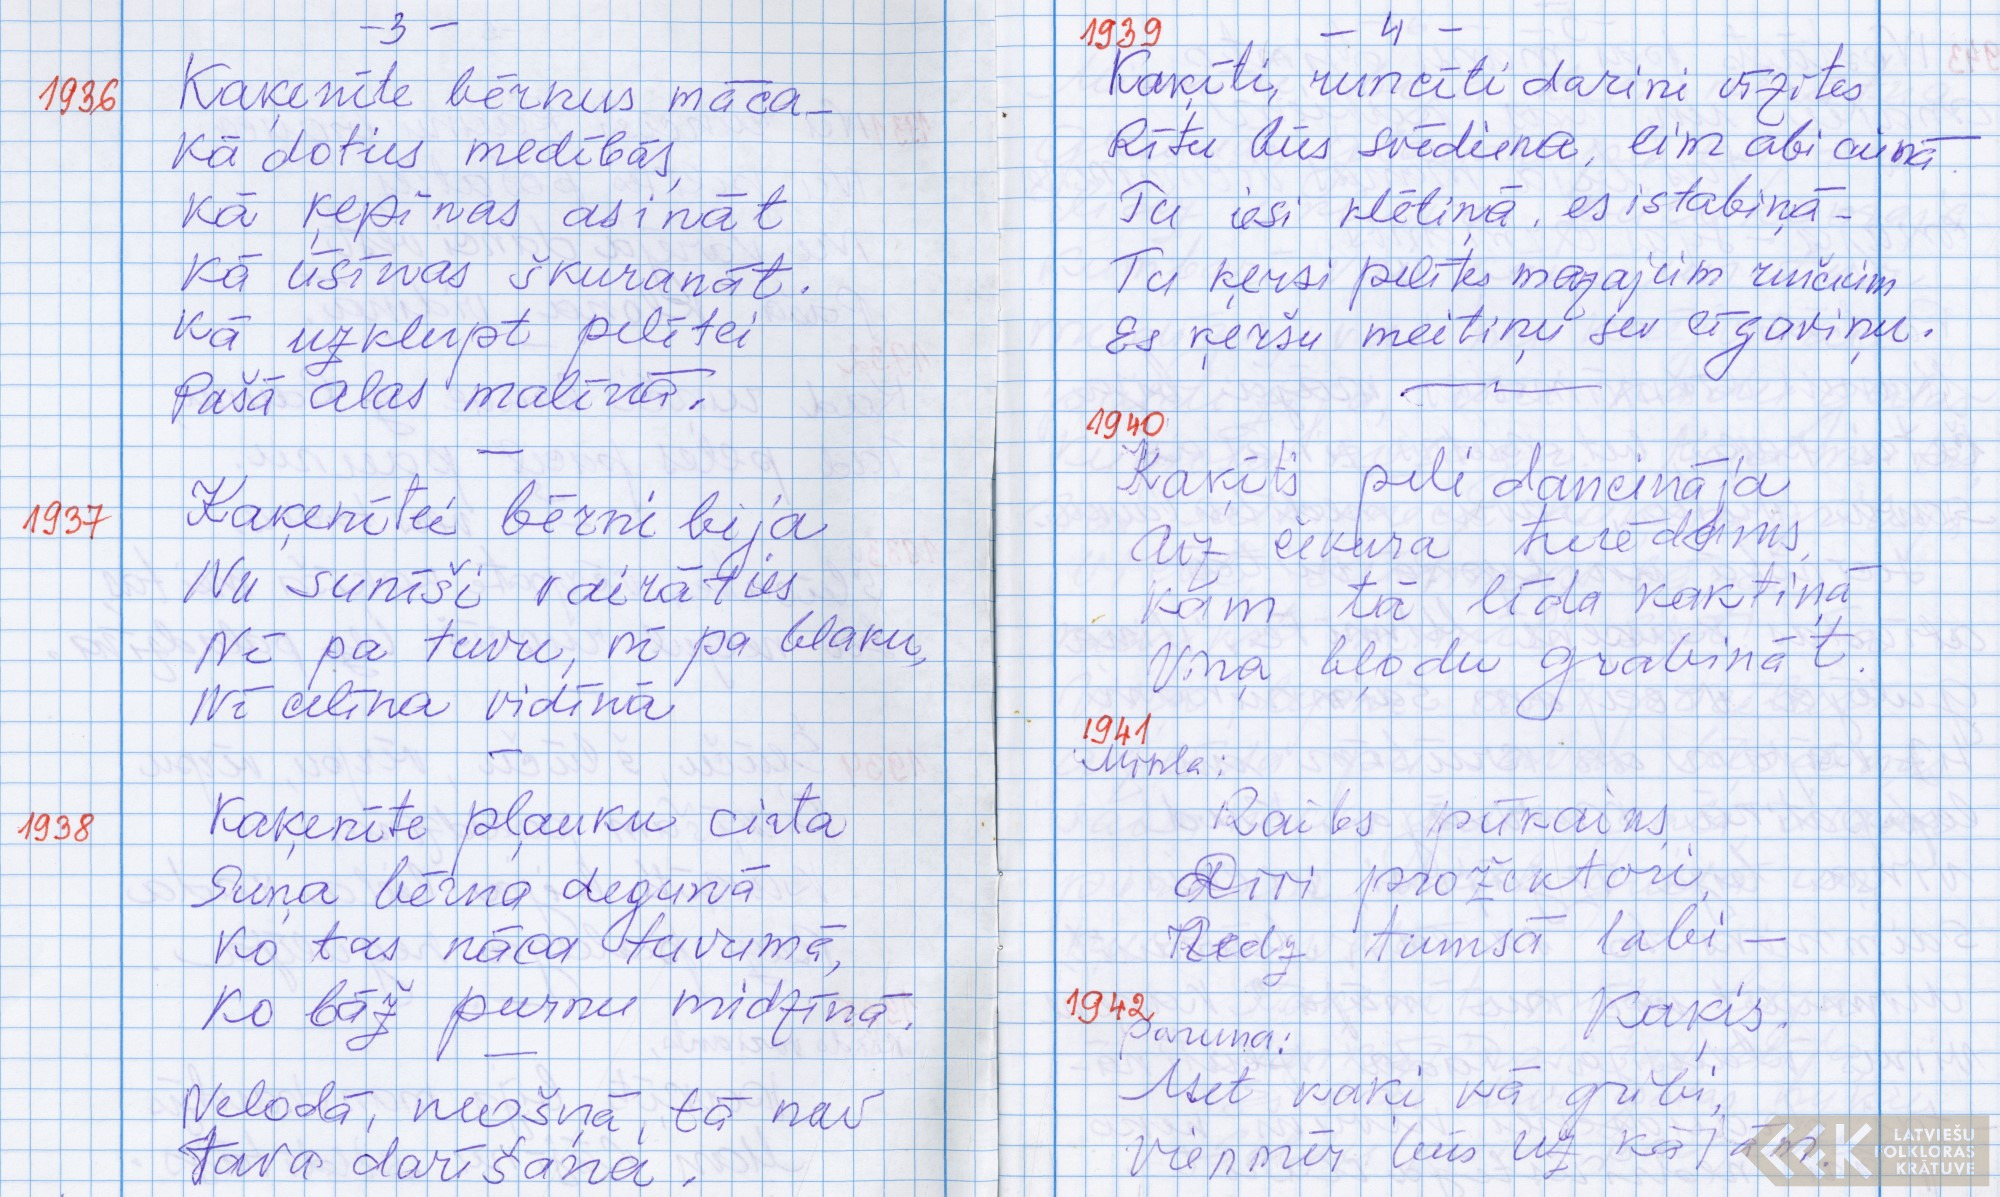 – 3 –
1936 Kaķenīte bērnus māca –
Kā doties medībās,
Kā ķepīnas asināt
Kā ūsīnas škuranāt.
Kā uzklupt pelītei
Pašā alas malīnā.
—
1937 Kaķenītei bērni bija
Nu sunīši vairāties
Nī pa tuvu, nī pa blaku,
Nī celīna vidīnā
—
1938 Kaķenīte pļauku cirta
Suņa bērna degunā
Ko tas nāca tuvumā,
Ko bāž purnu midzīnā.
—
Nelodā, neošņā, tā nav
tava darīšana.
– 4 –
1939
Kaķīti, runcīti darini vīzītes
Rītu būs svēdiena, eim abi ciemā
Tu iesi klētiņā, es istabiņā –
Tu ķersi pelītes mazajiem runčiem
Es ķeršu meitiņu sev līgaviņu.
—
1940
Kaķīts peli dancināja
Aiz čekura turēdams,
Kam tā līda kaktiņā
Viņa bļodu grabināt.
1941
Mīkla:
Raibs pūkains,
Divi prožektori,
Redz tumsā labi –
Kaķis.
1942
Paruna:
Met kaķi kā gribi,
vienmēr būs uz kājām.
LATVIEŠU
FOLKLORAS
KRĀTUVE